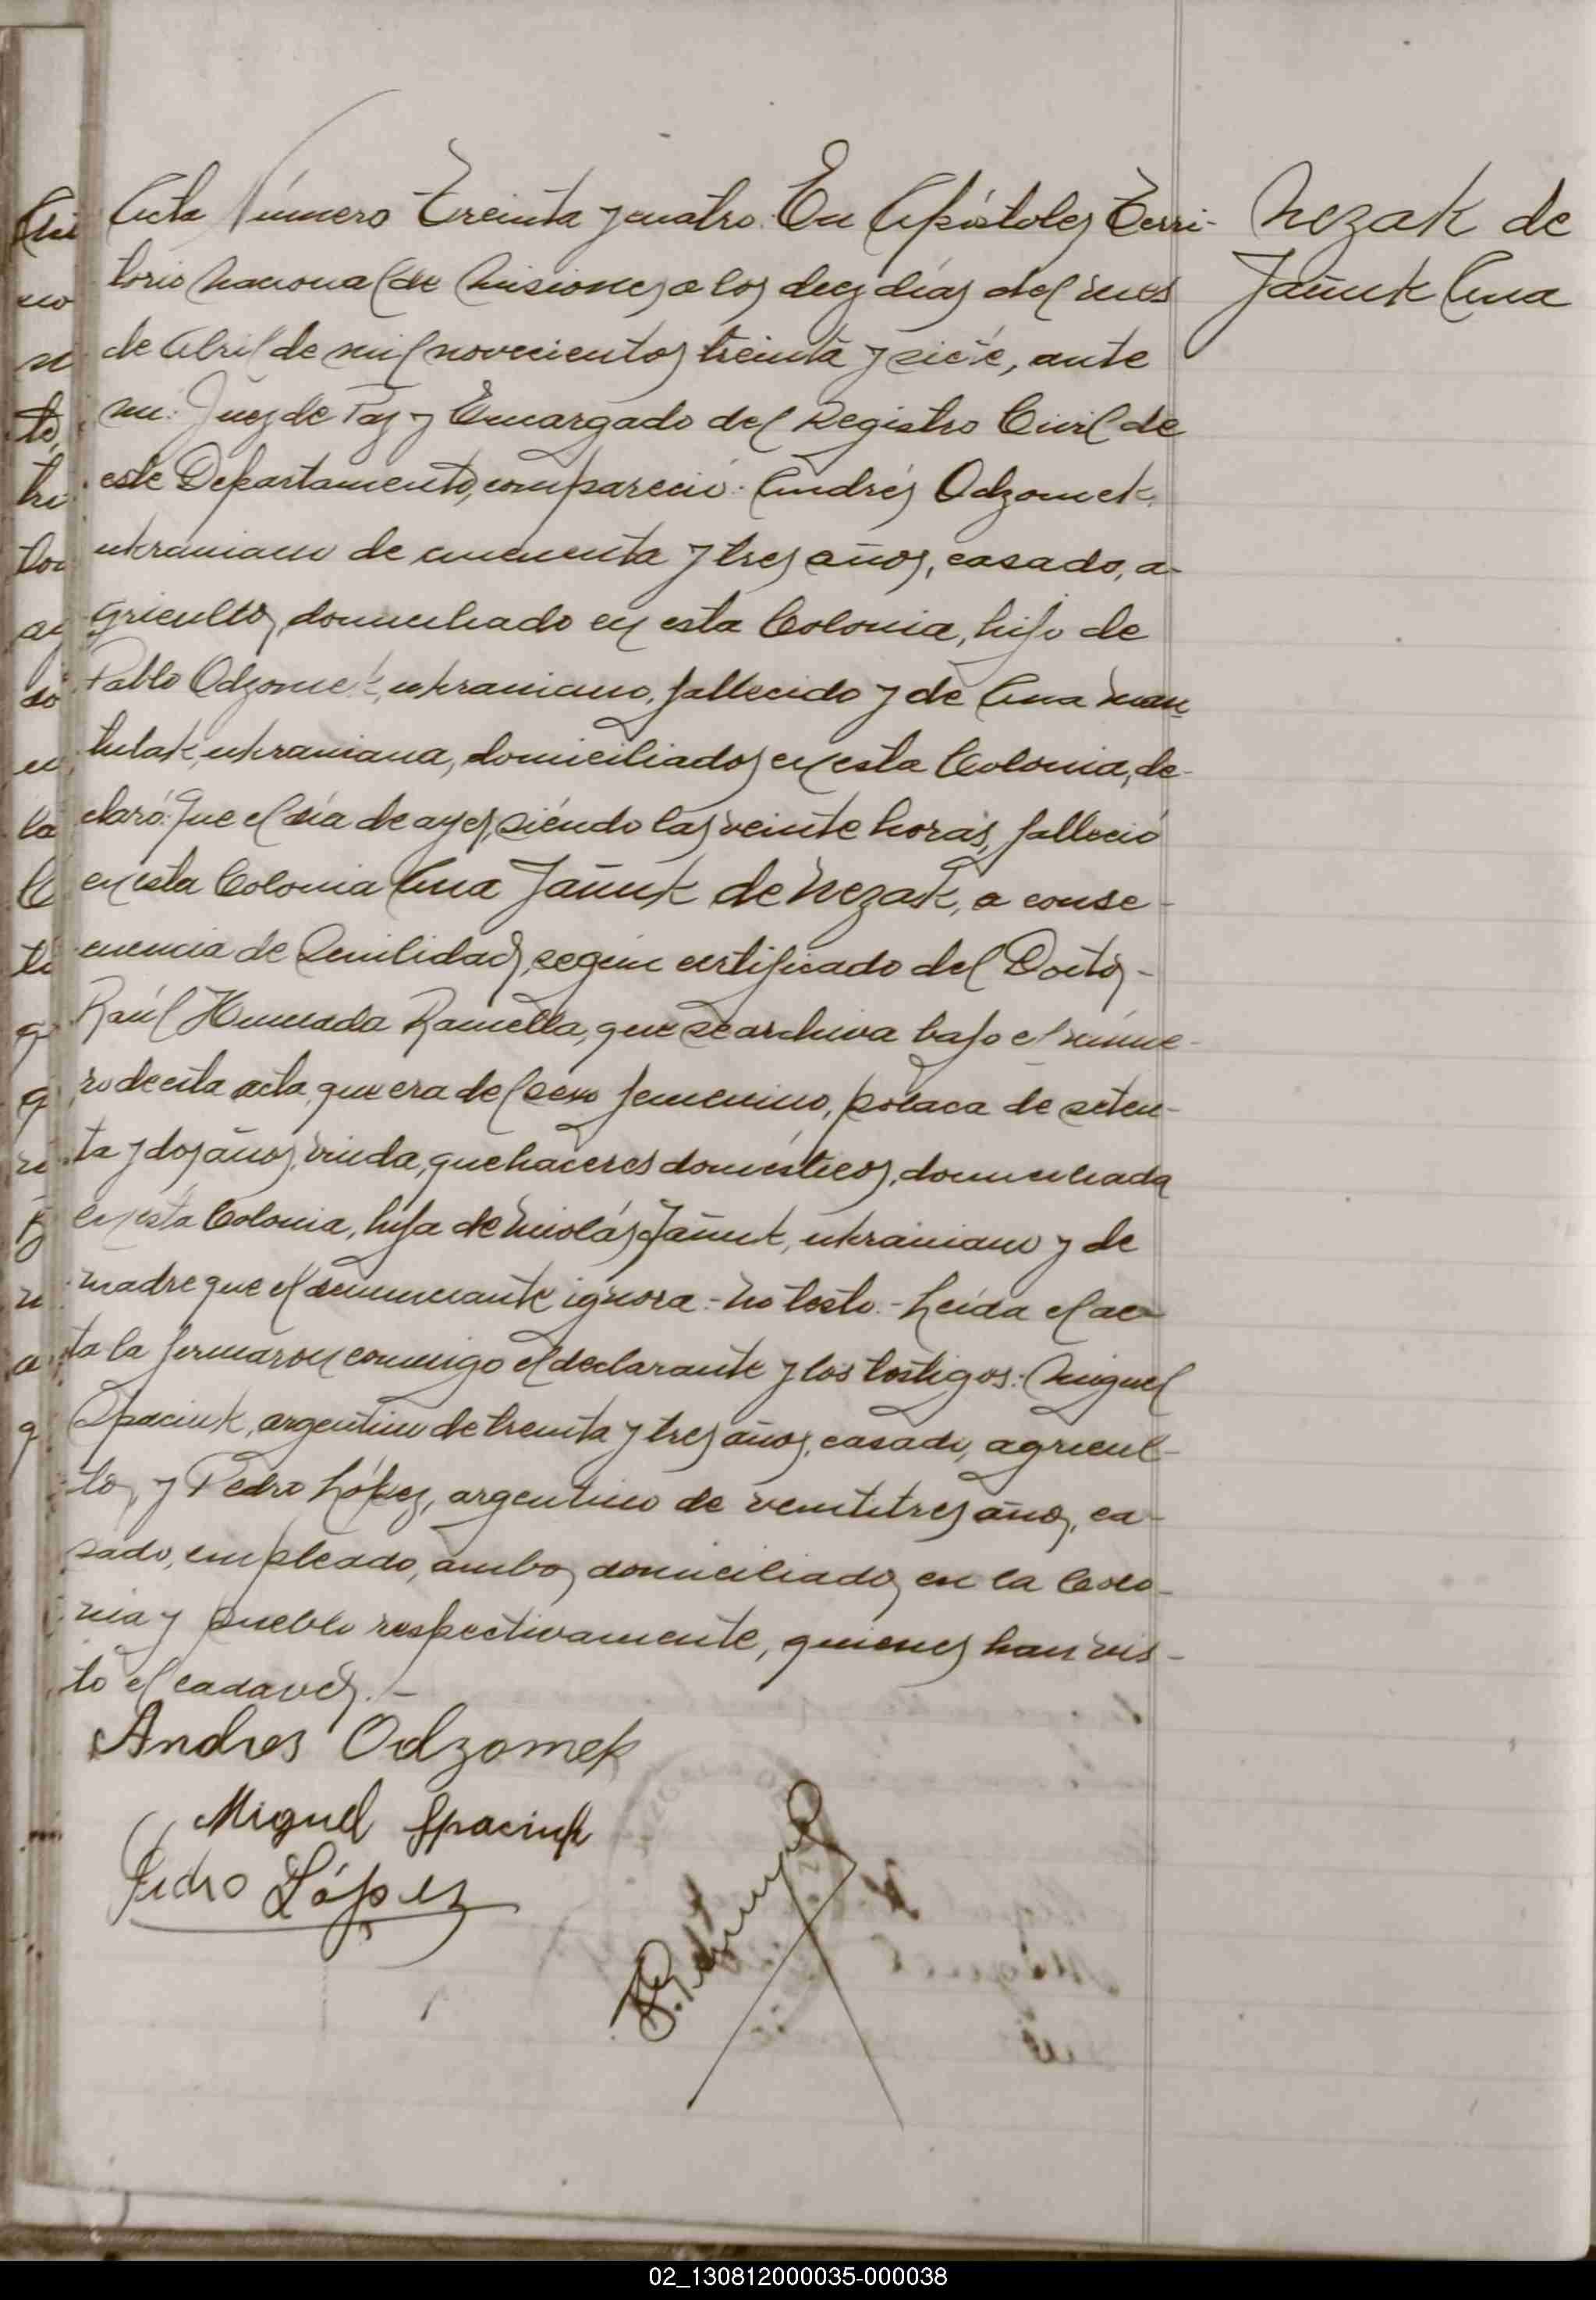 Nezak de
Jañuk Ana
Acta Número Treinta y cuatro. En Apóstoles Terri-
torio Nacional de Misiones a los diez días del mes
de Abril de mil novecientos treinta y siete, ante
mi: Juez de Paz y Encargado del Registro Civil de
este Departamento, compareció: Andrés Odzomek,
ukraniano de cincuenta y tres años, casado, a-
gricultor, domiciliado en esta Colonia, hijo de
Pablo Odzomek, ukraniano, fallecido y de Ana Man
tulak, ukraniana, domiciliados en esta Colonia, de-
claró: Que el día de ayer, siéndo las veinte horas, falleció
en esta Colonia Ana Jañuk de Nezak, a conse-
cuencia de Senilidad, según certificado del Doctor-
Raúl Ramella, que se archiva bajo el núme-
ro de esta acta, que era del sexo femenino, polaca de seten-
ta y dos años, viuda, quehaceres domésticos, domiciliada
en esta Colonia, hija de Nicolás Jañuk, ukraniano y de
madre que el denunciante ignora.- No testo.- Leída el ac-
ta la firmaron conmigo el declarante y los testigos: Miguel
Spaciuk, argentino de treinta y tres años, casado, agricul-
tor, y Pedro López, argentino de veintitres años, ca-
sado, empleado, ambos domiciliados en la Colo-
nia y pueblo respectivamente, quienes han vis-
to el cadaver.-
Andres Odzomek
Miguel Spaciuk
Pedro López
02_130812000035-000038